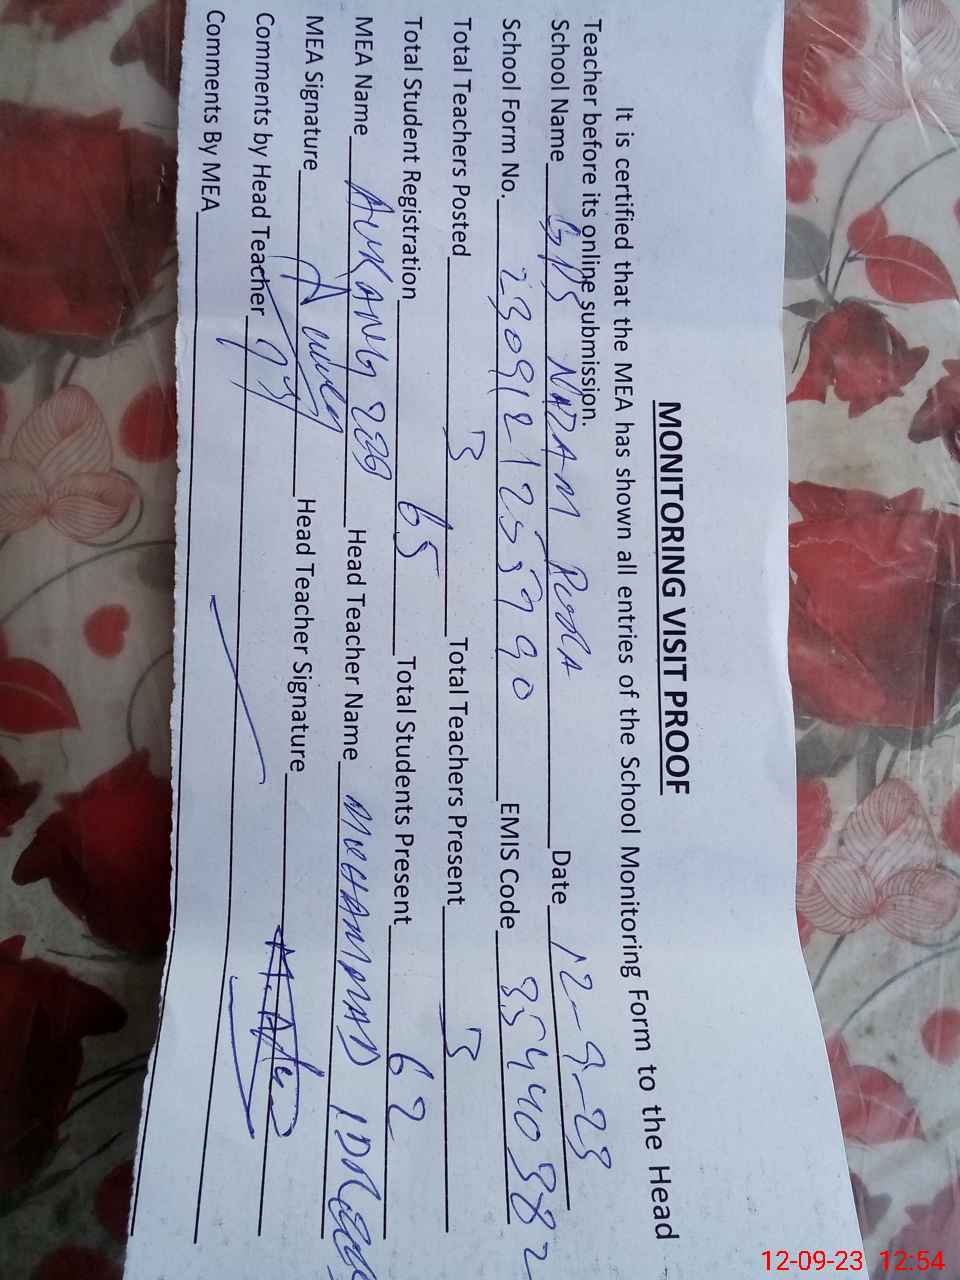 MONITORING VISIT PROOF
It is certified that the MEA has shown all entries of the School Monitoring Form to the Head
Teacher before its online submission.
School Name GPS NADAM Date 12-9-23
School Form No. EMIS Code 35440382
Total Teachers Posted 3 Total Teachers Present 3
Total Student Registration 65 Total Students Present 62
MEA Name AURANGZEB Head Teacher Name MUHAMMAD IDREES
MEA Signature Head Teacher Signature
Comments by Head Teacher
Comments By MEA
12-09-23 12:54